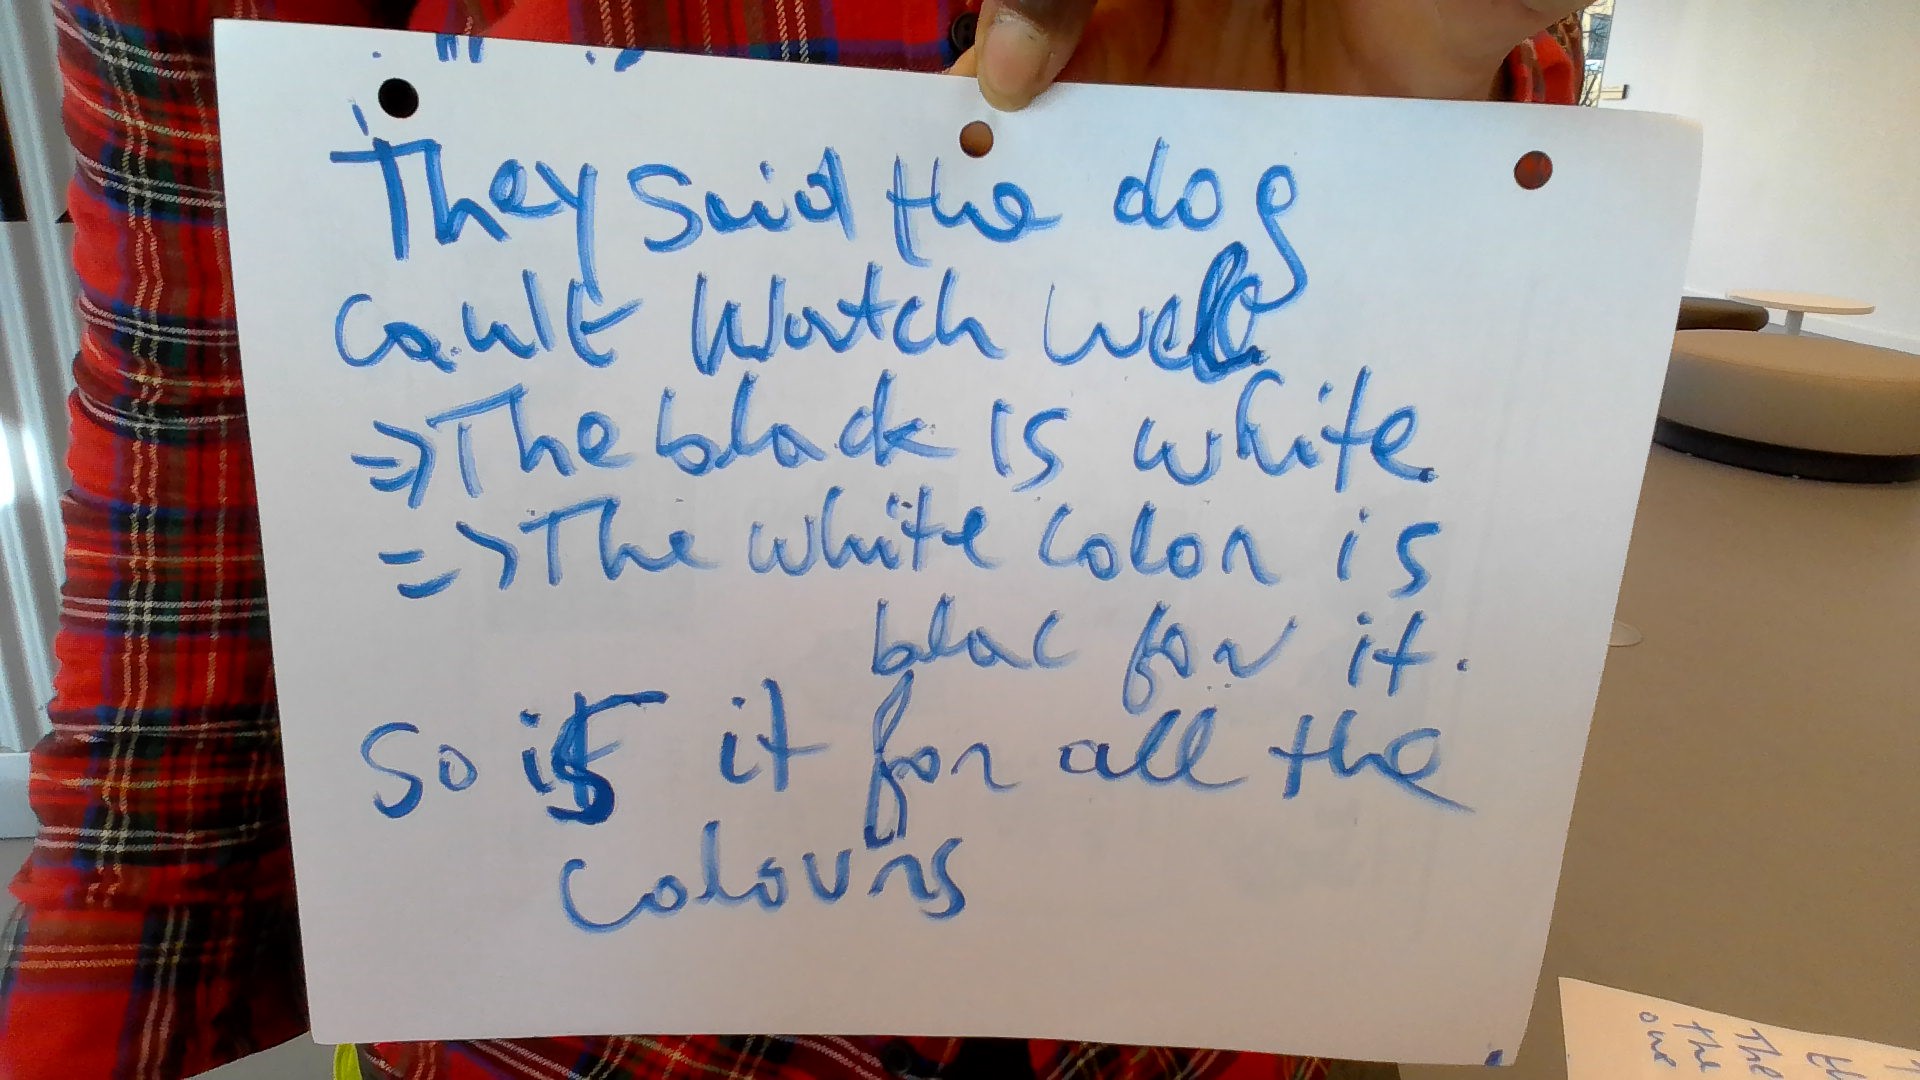 They said the dog
cault watch well
=> The black is white.
=> The white color is
blac for it.
So is it for all the
colours
The
the
our